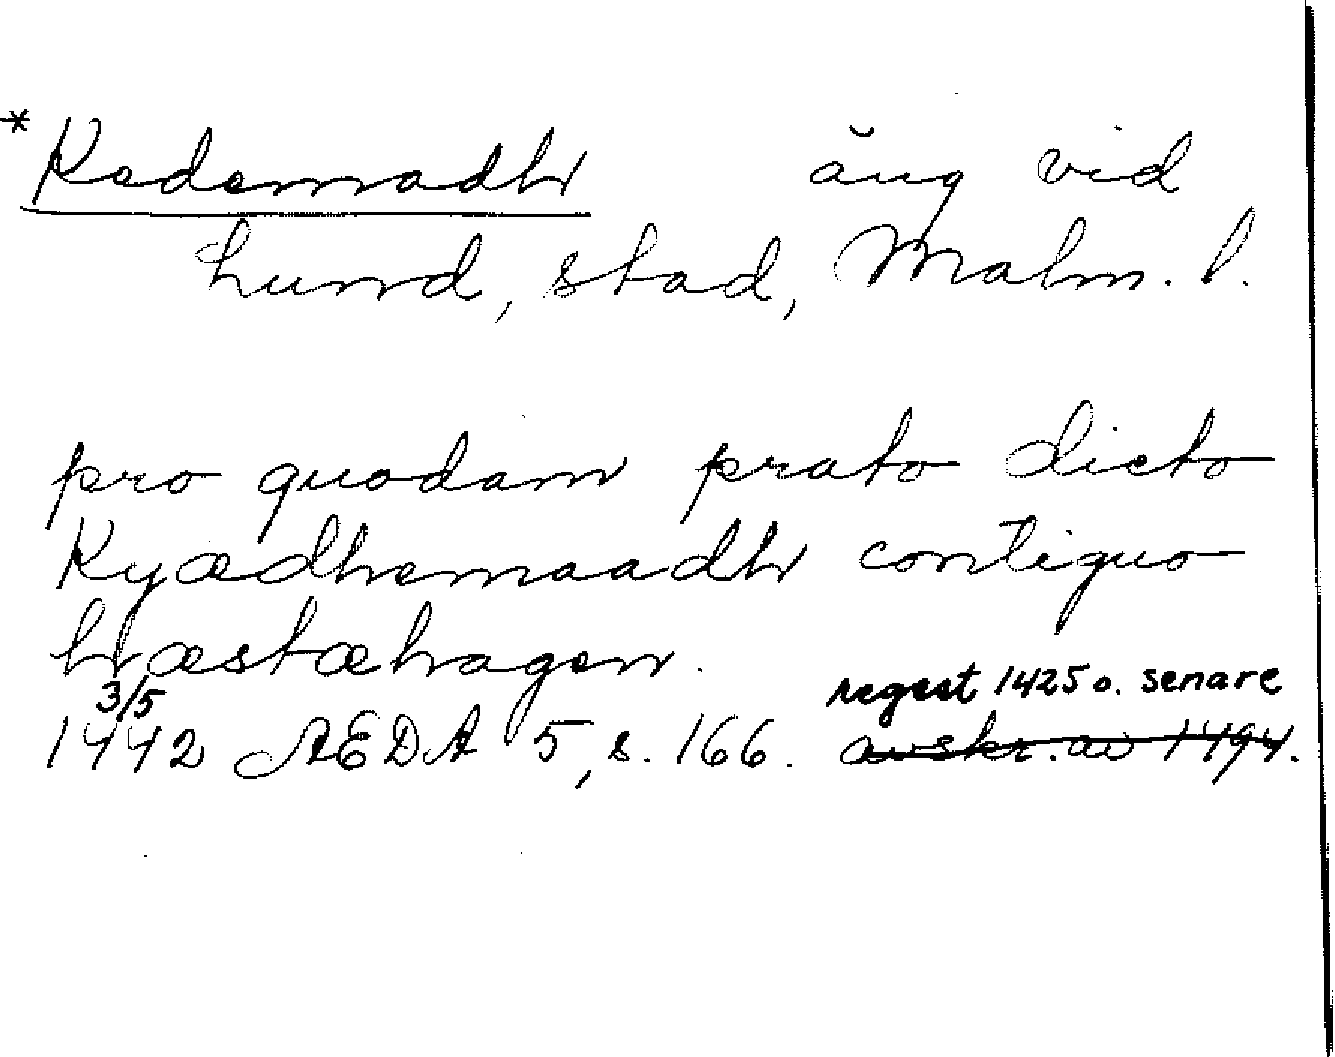 * Kedemadh äng vid
Lund, stad, Malm. l.
pro quodam prato dicto
Kyædhemaadh contiguo
hæstæhagen.
3/5 regest 1425 o. senare
1442 AEDA 5, s. 166. avskr. av 1494.